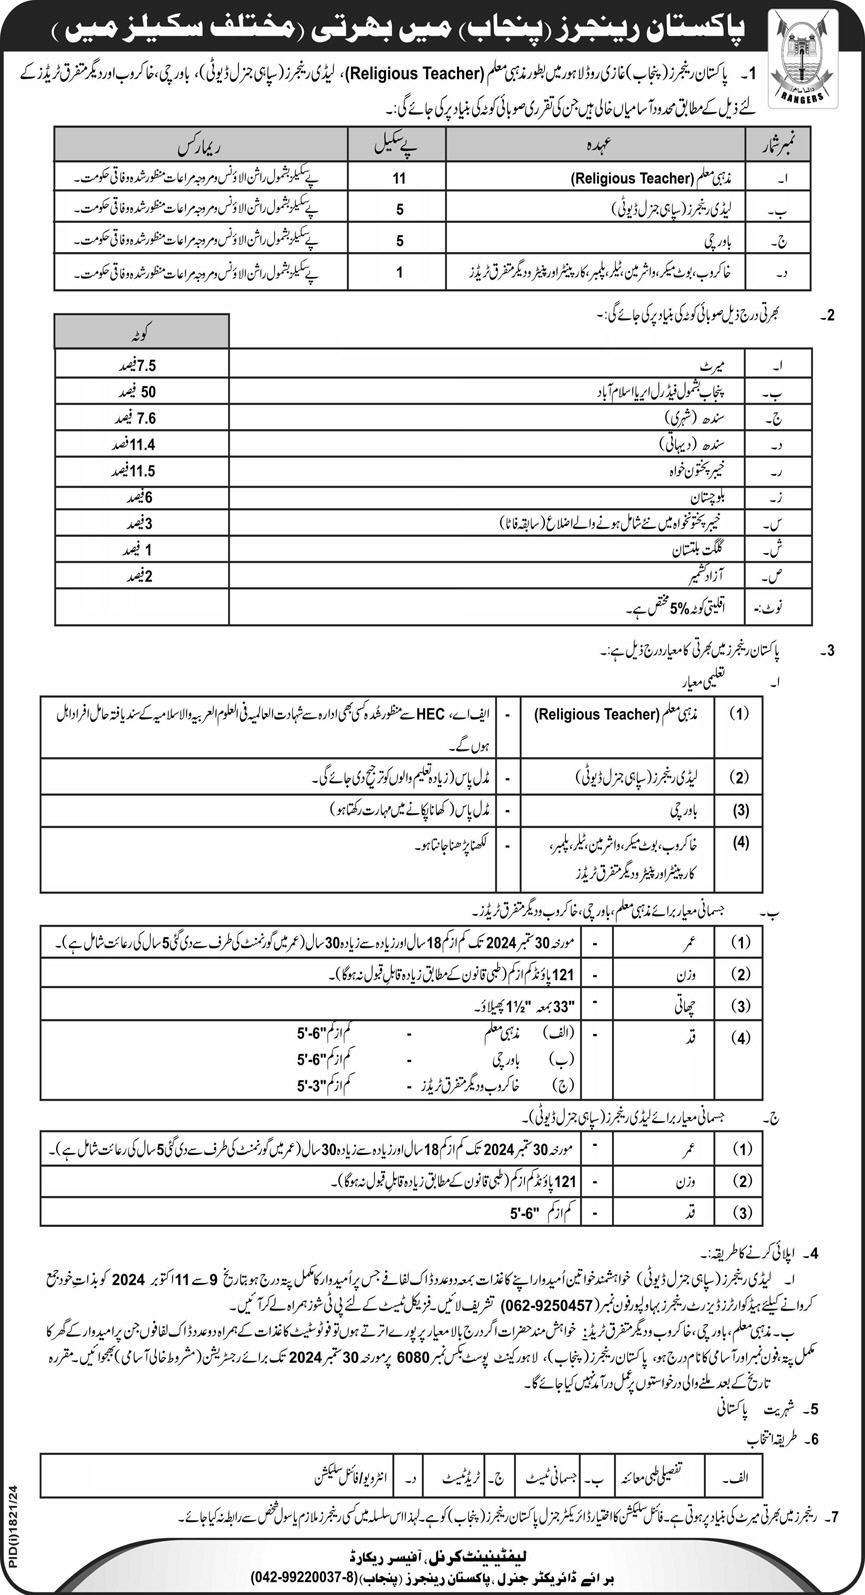 پاکستان رینجرز (پنجاب) میں بھرتی (مختلف سکیلز میں)
RANGERS
1۔ پاکستان رینجرز (پنجاب) غازی روڈ لاہور میں بطور مذہبی معلم (Religious Teacher)، لیڈی رینجرز (سپاہی جنرل ڈیوٹی)، باورچی، خاکروب اور دیگر متفرق ٹریڈز کے
لئے ذیل کے مطابق محدود آسامیاں خالی ہیں جن کی تقرری صوبائی کوٹہ کی بنیاد پر کی جائے گی:۔
نمبر شمار عہدہ پے سکیل ریمارکس
ا۔ مذہبی معلم (Religious Teacher) 11 پے سکیلز بشمول راشن الاؤنس و مروجہ مراعات منظور شدہ وفاقی حکومت۔
ب۔ لیڈی رینجرز (سپاہی جنرل ڈیوٹی) 5 پے سکیلز بشمول راشن الاؤنس و مروجہ مراعات منظور شدہ وفاقی حکومت۔
ج۔ باورچی 5 پے سکیلز بشمول راشن الاؤنس و مروجہ مراعات منظور شدہ وفاقی حکومت۔
د۔ خاکروب، بوٹ میکر، واشرمین، ٹیلر، پلمبر، کارپینٹر اور پینٹر و دیگر متفرق ٹریڈز 1 پے سکیلز بشمول راشن الاؤنس و مروجہ مراعات منظور شدہ وفاقی حکومت۔
2۔ بھرتی درج ذیل صوبائی کوٹہ کی بنیاد پر کی جائے گی:۔
کوٹہ
ا۔ میرٹ 7.5 فیصد
ب۔ پنجاب بشمول فیڈرل ایریا اسلام آباد 50 فیصد
ج۔ سندھ (شہری) 7.6 فیصد
د۔ سندھ (دیہاتی) 11.4 فیصد
ر۔ خیبر پختون خواہ 11.5 فیصد
ز۔ بلوچستان 6 فیصد
س۔ خیبر پختونخواہ میں نئے شامل ہونے والے اضلاع (سابقہ فاٹا) 3 فیصد
ش۔ گلگت بلتستان 1 فیصد
ص۔ آزاد کشمیر 2 فیصد
نوٹ:- اقلیتی کوٹہ 5% مختص ہے۔
3۔ پاکستان رینجرز میں بھرتی کا معیار درج ذیل ہے:۔
ا۔ تعلیمی معیار
(1) مذہبی معلم (Religious Teacher) - ایف اے، HEC سے منظور شدہ کسی بھی ادارہ سے شہادت العالمیہ فی العلوم العربیہ والاسلامیہ کے سند یافتہ حامل افراد اہل
ہوں گے۔
(2) لیڈی رینجرز (سپاہی جنرل ڈیوٹی) - مڈل پاس (زیادہ تعلیم والوں کو ترجیح دی جائے گی۔
(3) باورچی - مڈل پاس (کھانا پکانے میں مہارت رکھتا ہو)
(4) خاکروب، بوٹ میکر، واشرمین، ٹیلر، پلمبر، - لکھنا پڑھنا جانتا ہو۔
کارپینٹر اور پینٹر و دیگر متفرق ٹریڈز
ب۔ جسمانی معیار برائے مذہبی معلم، باورچی، خاکروب و دیگر متفرق ٹریڈز۔
(1) عمر - مورخہ 30 ستمبر 2024 تک کم از کم 18 سال اور زیادہ سے زیادہ 30 سال (عمر میں گورنمنٹ کی طرف سے دی گئی 5 سال کی رعائت شامل ہے)۔
(2) وزن - 121 پاؤنڈ کم از کم (طبی قانون کے مطابق زیادہ قابل قبول نہ ہوگا)۔
(3) چھاتی - 33" بمعہ 1½" پھیلاؤ۔
(4) قد - (الف) مذہبی معلم - کم از کم 5'-6"
(ب) باورچی - کم از کم 5'-6"
(ج) خاکروب و دیگر متفرق ٹریڈز - کم از کم 5'-3"
ج۔ جسمانی معیار برائے لیڈی رینجرز (سپاہی جنرل ڈیوٹی)۔
(1) عمر - مورخہ 30 ستمبر 2024 تک کم از کم 18 سال اور زیادہ سے زیادہ 30 سال (عمر میں گورنمنٹ کی طرف سے دی گئی 5 سال کی رعائت شامل ہے)۔
(2) وزن - 121 پاؤنڈ کم از کم (طبی قانون کے مطابق زیادہ قابل قبول نہ ہوگا)۔
(3) قد - کم از کم 5'-6"
4۔ اپلائی کرنے کا طریقہ:۔
ا۔ لیڈی رینجرز (سپاہی جنرل ڈیوٹی) خواہشمند خواتین اُمیدوار اپنے کاغذات بمعہ دو عدد ڈاک لفافے جس پر اُمیدوار کا مکمل پتہ درج ہو بتاریخ 9 سے 11 اکتوبر 2024 کو بذات خود جمع
کروانے کیلئے ہیڈکوارٹرز ڈیزرٹ رینجرز بہاولپور فون نمبر (062-9250457) تشریف لائیں۔ فزیکل ٹیسٹ کے لئے پی ٹی شوز ہمراہ لے کر آئیں۔
ب۔ مذہبی معلم، باورچی، خاکروب و دیگر متفرق ٹریڈز: خواہش مند حضرات اگر درج بالا معیار پر پورے اترتے ہوں تو فوٹو سٹیٹ کاغذات کے ہمراہ دو عدد ڈاک لفافوں جن پر امیدوار کے گھر کا
مکمل پتہ، فون نمبر اور آسامی کا نام درج ہو، پاکستان رینجرز (پنجاب)، لاہور کینٹ پوسٹ بکس نمبر 6080 پر مورخہ 30 ستمبر 2024 تک برائے رجسٹریشن (مشروط خالی آسامی) بھجوائیں۔ مقررہ
تاریخ کے بعد ملنے والی درخواستوں پر عمل درآمد نہیں کیا جائے گا۔
5۔ شہریت پاکستانی
6۔ طریقہ انتخاب
الف۔ تفصیلی طبی معائنہ ب۔ جسمانی ٹیسٹ ج۔ ٹریڈ ٹیسٹ د۔ انٹرویو/فائنل سلیکشن
7۔ رینجرز میں بھرتی میرٹ کی بنیاد پر ہوتی ہے۔ فائنل سلیکشن کا اختیار ڈائریکٹر جنرل پاکستان رینجرز (پنجاب) کو ہے۔ لہٰذا اس سلسلہ میں کسی رینجرز ملازم یا سول شخص سے رابطہ نہ کیا جائے۔
لیفٹیننٹ کرنل، آفیسر ریکارڈ
برائے ڈائریکٹر جنرل، پاکستان رینجرز (پنجاب) (042-99220037-8)
PID(i)1821/24